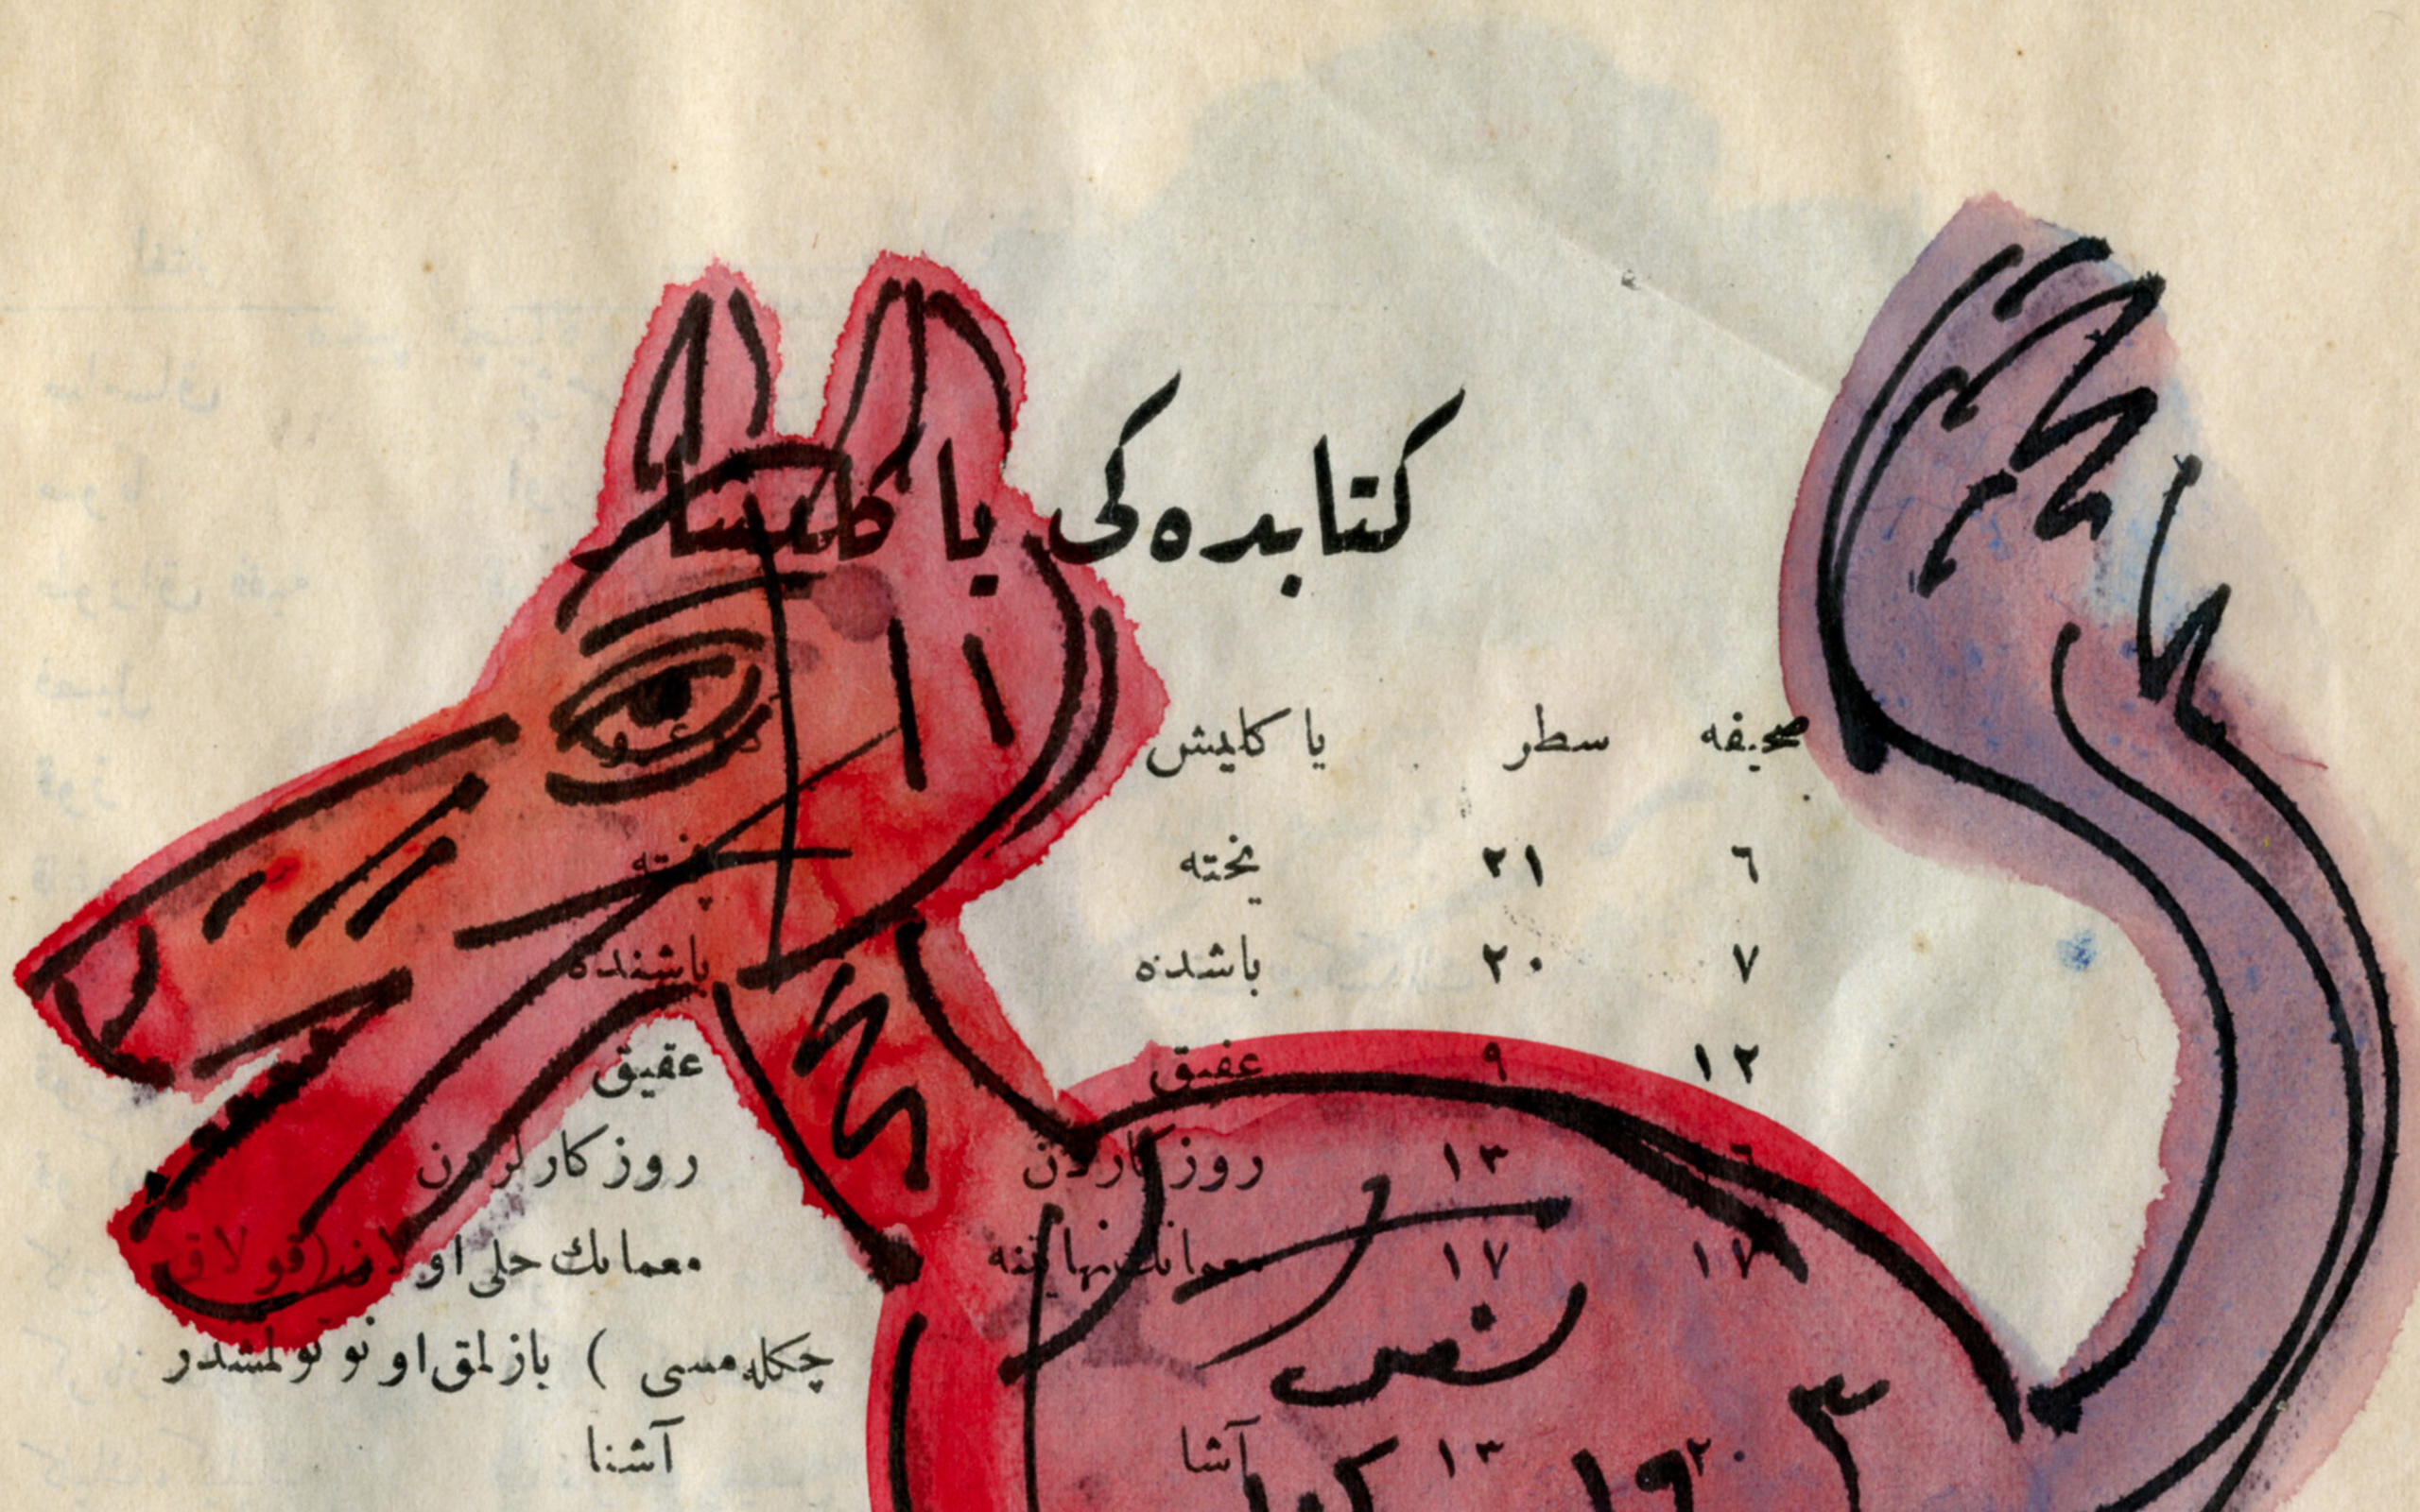 كتابده‌كی یا كلیشلر
صحیفه سطر یا كلیش دوغرو
٦ ٢١ یخته پخته
٧ ٢٠ باشده باشنده
١٢ ٩ عفیق عقیق
١٦ ١٣ روزكاردن روزكارلردن
١٧ ١٧ معمانك معمانك حلی اولان (قولاق
چكله‌مسی ) یازلمق اونوتولمشدر
١٣ آشا آشنا